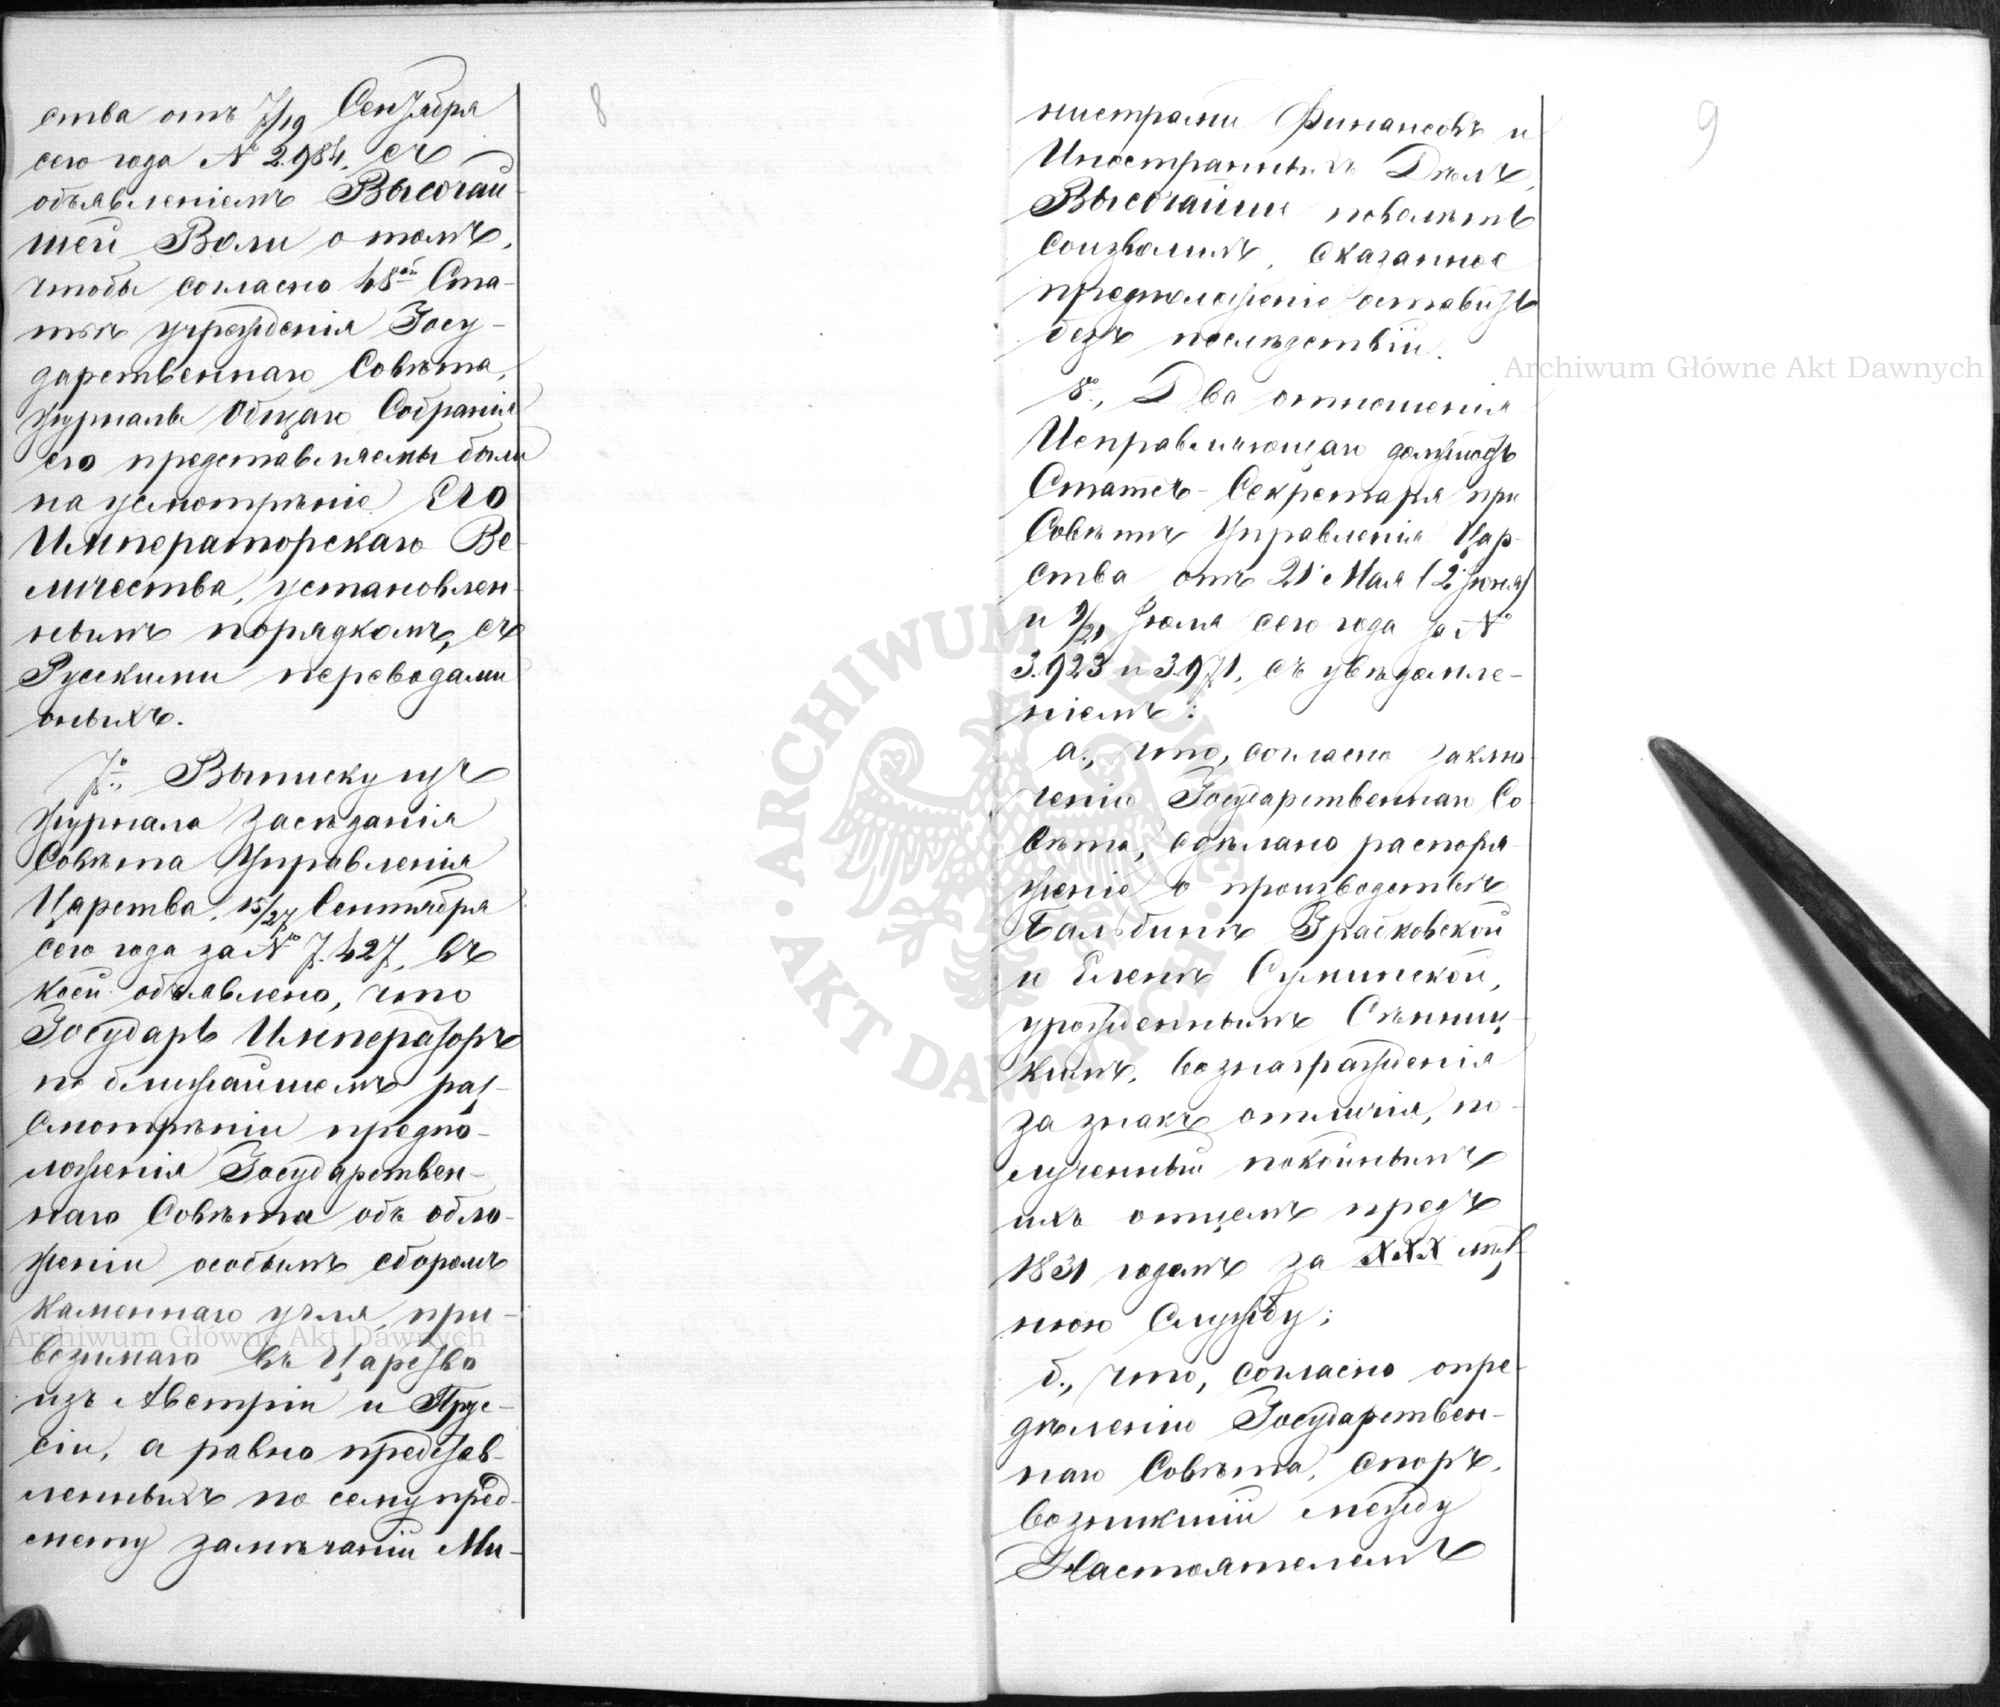 8
ства отъ 7/19 Сентября
сего года № 2.984, съ
объявленіемъ Высочай-
шей Воли о томъ,
чтобы согласно 48ой Ста-
тьѣ учрежденія Госу-
дарственнаго Совѣта,
журналы Общаго Собранія
его представляемы были
на усмотрѣніе Его
Императорскаго Ве-
личества, установлен-
нымъ порядкомъ, съ
Русскими переводами
оныхъ.
7о, Выписку изъ
журнала засѣданія
Совѣта Управленія
Царства, 15/27 Сентября
сего года за № 7.427, въ
коей объявлено, что
Государь Императоръ
по ближайшемъ раз-
смотрѣніи предпо-
ложенія Государствен-
наго Совѣта объ обло-
женіи особымъ сборомъ
каменнаго угля, при-
возимаго въ Царство
изъ Австріи и Прус-
сіи, а равно представ-
ленныхъ по сему пред-
мету замѣчаній Ми-
9
нистрами Финансовъ и
Иностранныхъ Дѣлъ,
Высочайше повелѣть
соизволилъ, сказанное
предположеніе оставить
безъ послѣдствій.
8о, Два отношенія
Исправляющаго должность
Статсъ-Секретаря при
Совѣтѣ Управленія Цар-
ства отъ 21 Мая (2 Іюня)
и 9/21 Іюля сего года за №
3.923 и 3.971, съ увѣдомле-
ніемъ:
а., что, согласно заклю-
ченію Государственнаго Со-
вѣта, сдѣлано распоря-
женіе о производствѣ
Бальбинѣ Грабковской
и Еленѣ Суминской,
урожденнымъ Сѣнниц-
кимъ, вознагражденія
за знакъ отличія, по-
лученный покойнымъ
ихъ отцемъ предъ
1831 годомъ за XXX лѣт-
нюю службу;
б., что, согласно опре-
дѣленію Государствен-
наго Совѣта, споръ,
возникшій между
Настоятелемъ
Archiwum Główne Akt Dawnych
Archiwum Główne Akt Dawnych
ARCHIWUM GŁÓWNE · AKT DAWNYCH ·